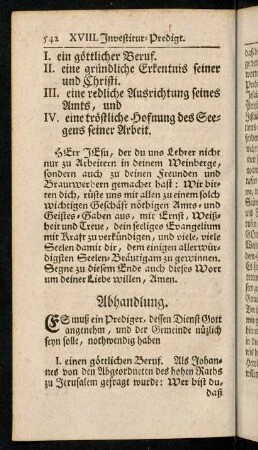 542 XVIII. Investitur-Predigt.
I. ein göttlicher Beruf.
II. eine gründliche Erkentnis seiner
und Christi.
III. eine redliche Ausrichtung seines
Amts, und
IV. eine tröstliche Hofnung des See-
gens seiner Arbeit.
HErr JEsu, der du uns Lehrer nicht
nur zu Arbeitern in deinem Weinberge,
sondern auch zu deinen Freunden und
Brautwerbern gemachet hast: Wir bit-
ten dich, rüste uns mit allen zu einem solch
wichtigen Geschäft nöthigen Amts- und
Geistes-Gaben aus, mit Ernst, Weiß-
heit und Treue, dein seeliges Evangelium
mit Kraft zu verkündigen, und viele, viele
Seelen damit dir, dem einigen allerwür-
digsten Seelen-Bräutigam zu gewinnen.
Segne zu diesem Ende auch dieses Wort
um deiner Liebe willen, Amen.
Abhandlung.
ES muß ein Prediger, dessen Dienst Gott
angenehm, und der Gemeinde nüzlich
seyn solle, nothwendig haben
I. einen göttlichen Beruf. Als Johan-
nes von den Abgeordneten des hohen Raths
zu Jerusalem gefragt wurde: Wer bist du,
daß